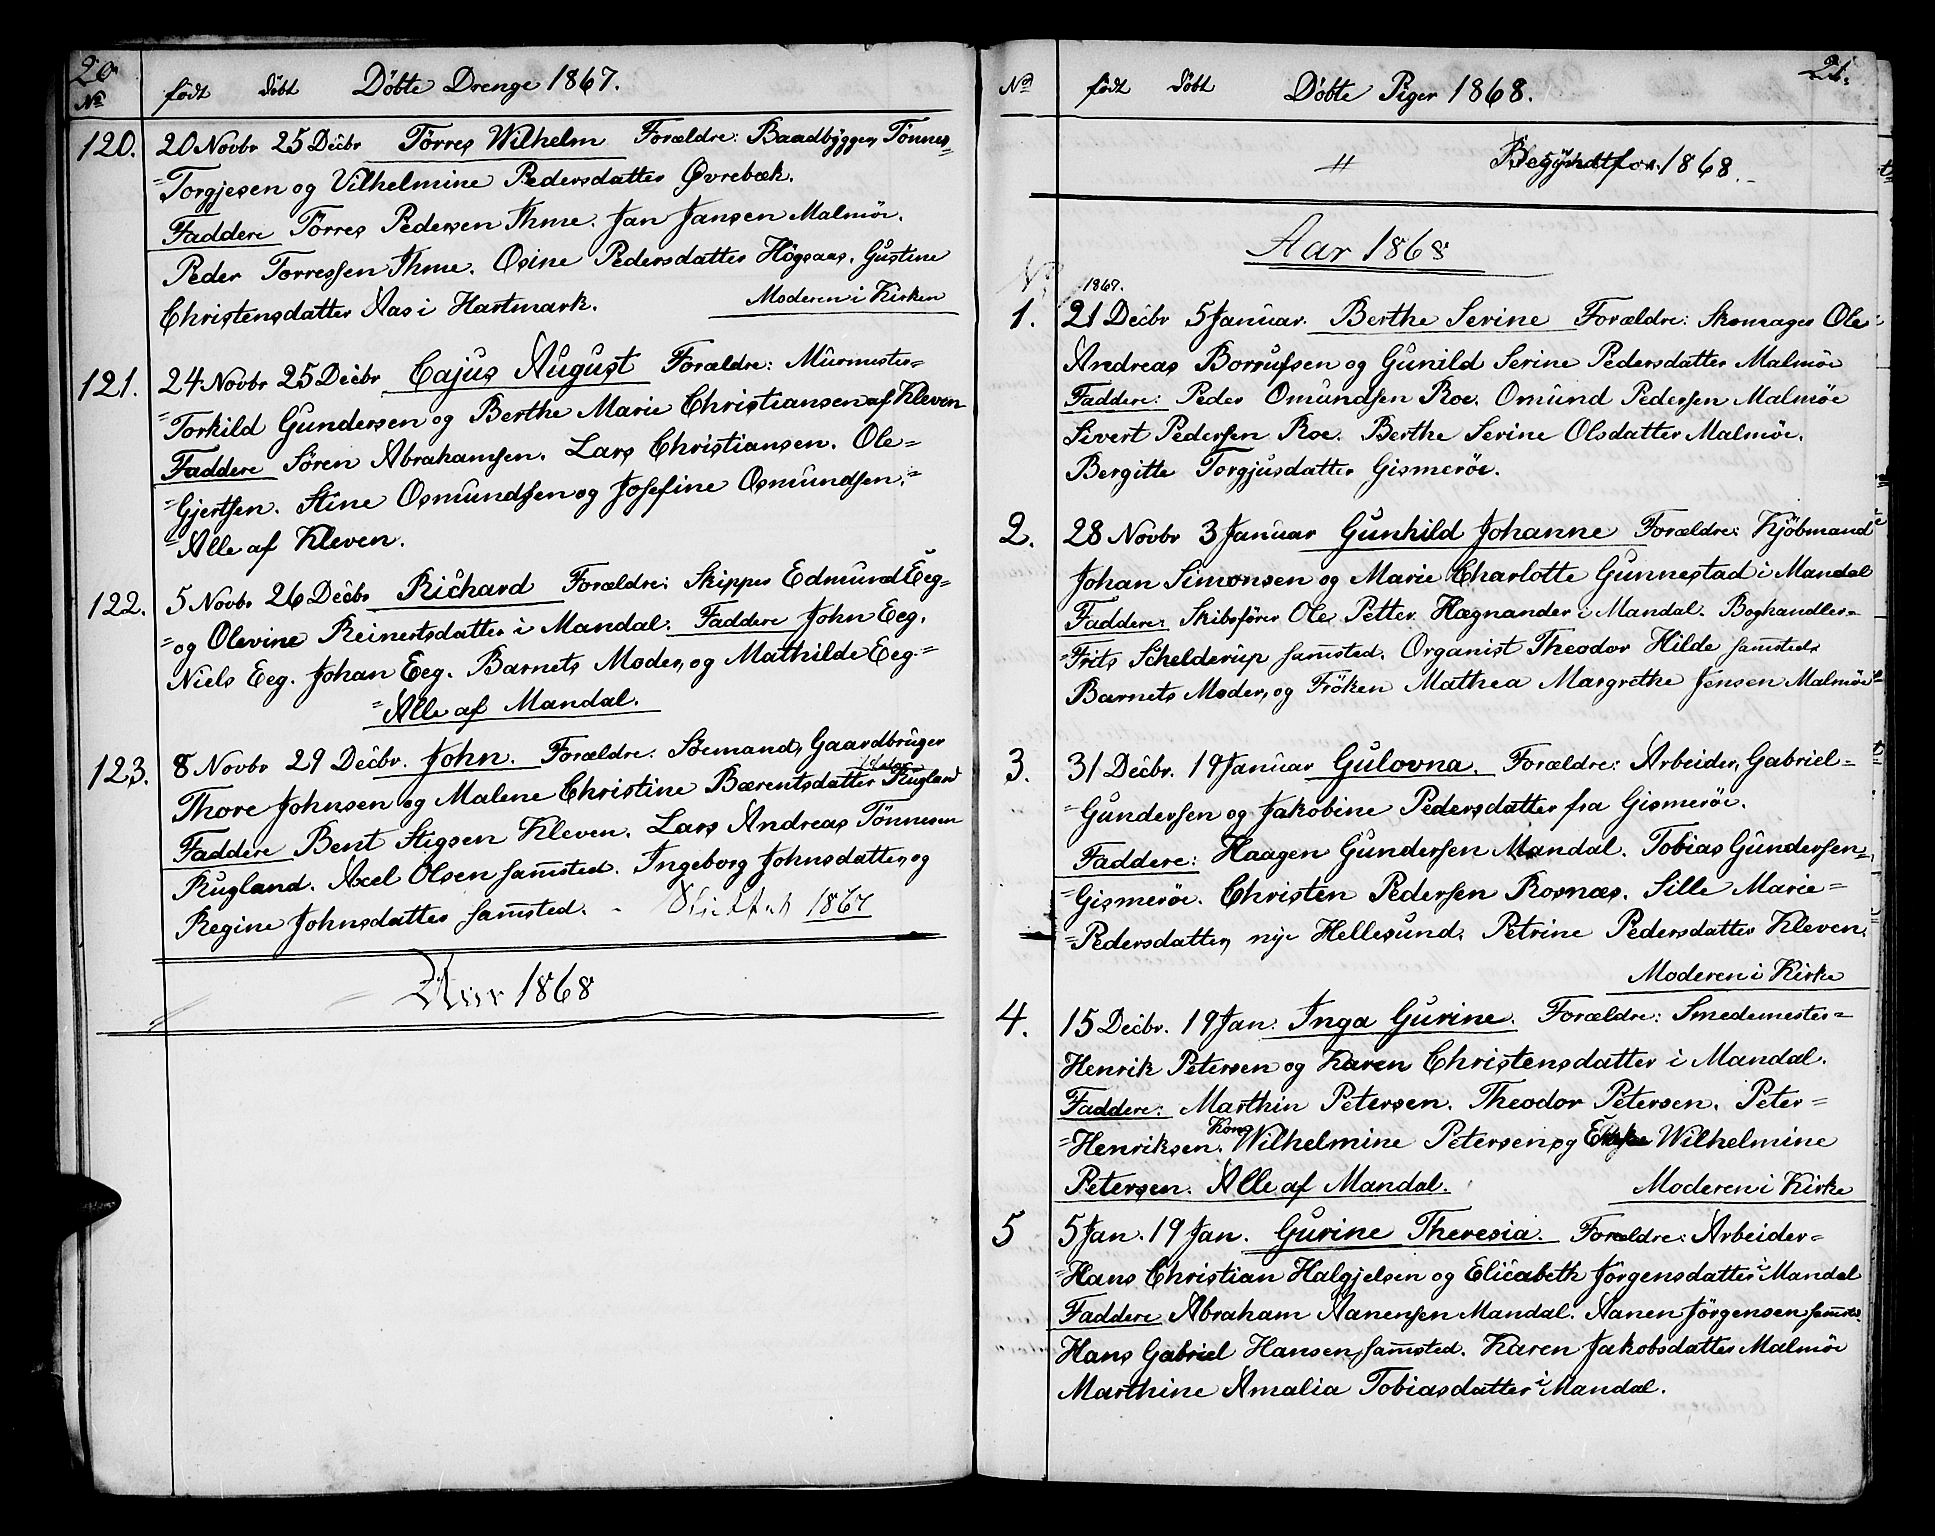 20
No født døbt Døbte Drenge 1867.
120. 20 Novbr 25 Decbr Törres Wilhelm Forældre: Baadbygger, Tönnes=
=Torgjesen og Vilhelmine Pedersdatter Øvrebæk.
Faddere Törres Pedersen Ihme. Jan Jansen Malmöe.
Peder Torressen Ihme. Osine Pedersdatter Högsaas. Gustine
Christensdatter Aas i Hartmark. Moderen i Kirken
121. 24 Novbr 25 Decbr Cajus August Forældre: Muurmester=
=Torkild Gundersen og Berthe Marie Christiansen af Kleven
Faddere Sören Abrahamsen. Lars Christiansen. Ole=
=Gjertsen. Stine Osmundsen og Josefine Osmundsen.=
=Alle af Kleven.
122. 5 Novbr 26 Decbr Richard Forældre: Skipper Edmund Eeg=
=og Olevine Reinertsdatter i Mandal. Faddere John Eeg.
Niels Eeg. Johan Eeg. Barnets Moder, og Mathilde Eeg=
=Alle af Mandal.
123. 8 Novbr 29 Decbr. John. Forældre: Söemand, Gaardbruger
Thore Johnsen og Malene Christine Bærentsdatter Rugland
Faddere Bent Stigsen Kleven. Lars Andreas Tönnesen
Rugland. Axel Olsen samsted. Ingeborg Johnsdatter, og
Regine Johnsdatter samsted. - Sluttet 1867
Aar 1868
21.
No født døbt Døbte Piger 1868.
" Begyndt for 1868.
Aar 1868
No 1867.
1. 21 Decbr 5 Januar. Berthe Serine Forældre: Skomager Ole
Andreas Borrufsen og Gunild Serine Pedersdatter Malmöe
Faddere: Peder Omundsen Roe. Omund Pedersen Malmöe
Sivert Pedersen Roe. Berthe Serine Olsdatter Malmöe.
Bergitte Torgjusdatter Gismeröe.
2. 28 Novbr 3 Januar Gunhild Johanne Forældre: Kjöbmand
Johan Simonsen og Marie Charlotte Gunnestad i Mandal
Faddere: Skibsförer Ole Petter Hægnander i Mandal. Boghandler=
=Frits Schelderup samsted. Organist Theodor Hilde samsted.
Barnets Moder, og Fröken Mathea Margrethe Jensen Malmöe
3. 31 Decbr. 19 Januar Gulovna. Forældre: Arbeider, Gabriel=
=Gundersen og Jakobine Pedersdatter fra Gismeröe.
Faddere: Haagen Gundersen Mandal. Tobias Gundersen=
=Gismeröe. Christen Pedersen Rosnæs. Sille Marie=
=Pedersdatter, nye Hellesund. Petrine Pedersdatter Kleven.
Moderen i Kirke
4. 15 Decbr. 19 Jan. Inga Gurine. Forældre: Smedemester=
Henrik Petersen og Karen Christensdatter i Mandal.
Faddere: Marthin Petersen. Theodor Petersen. Peter=
=Henriksen. Kone Wilhelmine Petersen, og Wilhelmine
Petersen. Alle af Mandal. Moderen i Kirke
5 5 Jan. 19 Jan. Gurine Theresia. Forældre: Arbeider=
=Hans Christian Halgjelsen og Elicabeth Jörgensdatter i Mandal
Faddere Abraham Aanensen Mandal. Aanen Jörgensen samsted.
Hans Gabriel Hansen, samsted. Karen Jakobsdatter Malmöe
Marthine Amalia Tobiasdatter i Mandal.